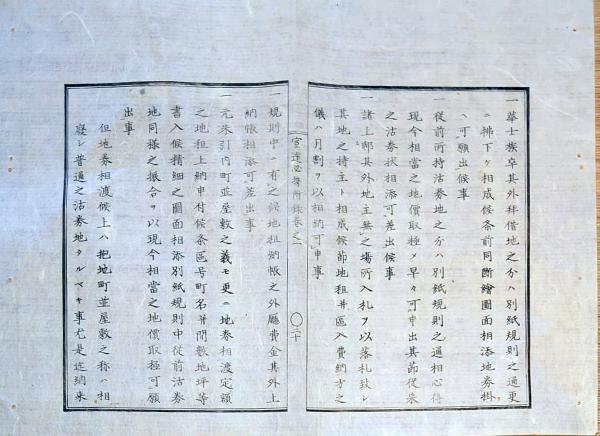 一華士族卒其外拝借地之分ハ別紙規則之通更
ニ拂下ケ相成候条前同断繪圖面相添地券掛
ヘ可願出候事
一従前所持沽券地之分ハ別紙規則之通相心得
現今相當之地價取極メ早々可申出其節従来
之沽券状相添可差出候事
一諸上邸其外地主無之場所入札ヲ以落札致シ
其地之持主ト相成候節地租并區入費納方之
儀ハ月割ヲ以相納可申事
宣達必携附録巻之一
〇二十
一規則中ニ有之候地租納帳之外廳費金其外上
納帳相添可差出事
一元来引内町並屋敷之義モ更ニ地券相渡定額
之地租上納申付候条區号町名并間數地坪等
書入候精細之圖面相添別紙規則中従前沽券
地同様之振合ヲ以現今相當之地價取極可願
出事
但地券相渡候上ハ拘地町並屋敷之称ハ相
廢シ普通之沽券地タルベキ事尤是迄納来